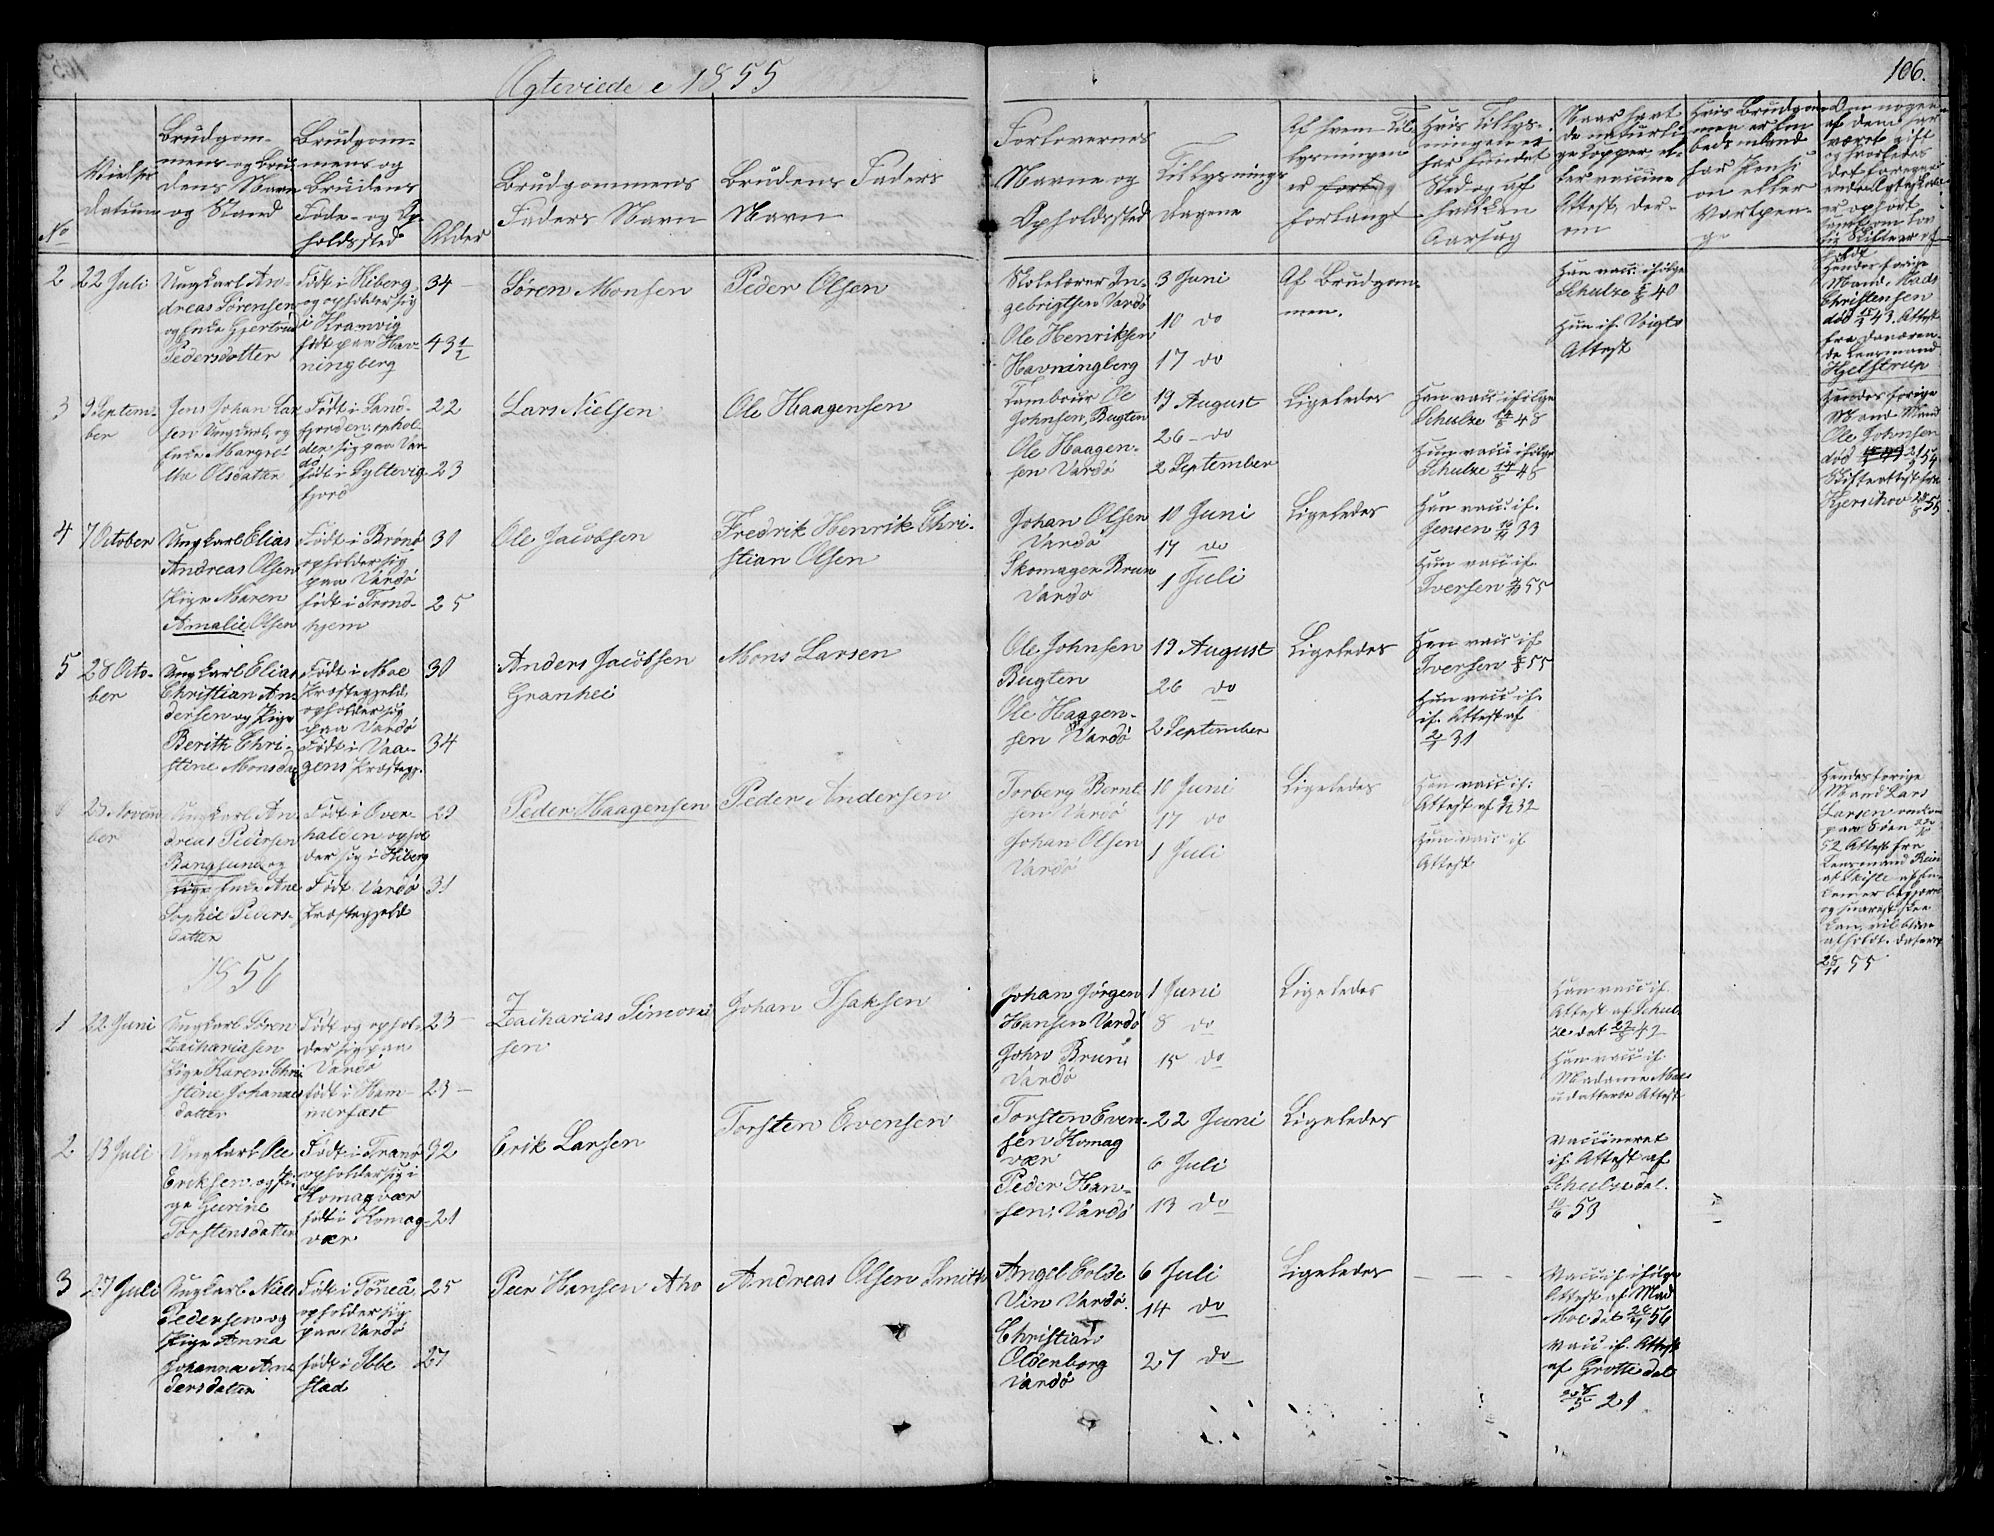 Ægteviede i 1855
106.
No
Vielses
datum
Brudgom-
mens og Bru
dens Navn
og Stand
Brudgom-
mens og
Brudens
Føde- og Op-
holdssted
Alder
Brudgommens
Faders Navn
Brudens Faders
Navn
Forlovernes
Navne og
Opholdssted
Tillysnings
dagene
Af hvem Til
lysningen
er
forlangt
Hvis Tillys-
ningen ei
har fundet
Sted og af
hvilken
Aarsag
Naar havt
de naturli
ge Kopper el-
ler vaccine
Attest der-
om
Hvis Brudgom
men er
for Pensi
on eller
Vartpen-
ge
Om nogen
af dem har
været gift
2
22 Juli
Ungkarl An-
dreas Sørensen
og Enke Gjertrud
Pedersdatter
Født i Kiberg
og opholder sig
i Kramvig
født paa Hav-
ningberg
34
43½
Søren Monsen
Peder Olsen
Skolelærer In-
gebrigtsen Vardø
Ole Henriksen
Havningberg
3 Juni
10 do
17 do
Af Brudgom-
men.
Han vacc. ifølge
Schulze 40
Hun if. Voigts
Attest
Hendes forige
Mand Mads
Christensen
død 43. Attest
fra daværen-
de Lensmand
Hjelstrup
3
9 Septem-
ber
Jens Johan Lar
sen Ungkarl, og
Enke Margre
the Olsdatter
Født i Sand-
fjorden ophol-
der sig paa Var
dø
født i Syltevig-
fjord
22
23
Lars Nielsen
Ole Haagensen
Tambour Ole
Johnsen, Bugten
Ole Haagen-
sen Vardø
19 August
26 - do
2 September
Ligeledes
Han vacc ifølge
Schulze 48
Hun vacc ifølge
Schulze 48
Hendes forige
Mand
Ole Johnsen
død 54
Skifteattest fra
4
7 October
Ungkarl Elias
Andreas Olsen
Pige Maren
Amalie Olsen
Født i Brønø
opholder sig
paa Vardø
født i Trond-
hjem
30
25
Ole Jacobsen
Fredrik Henrik Chri-
stian Olsen
Johan Olsen
Vardø
Skomager Brun
Vardø
10 Juni
17 do
1 Juli
Ligeledes
Han vacc if.
Jensen 33
Hun vacc if.
Iversen 55
5
28 Octo-
ber
Ungkarl Elias
Christian An-
dersen og Pige
Berith Chri-
stine Monsdat
Født i Moe
Præstegjeld,
opholder sig
paa Vardø
Født i Vaa-
gens Præstegj.
30
34
Anders Jacobsen
Granhei
Mons Larsen
Ole Johnsen
Bugten
Ole Haagen-
sen Vardø
19 August
26 do
2 September
Ligeledes
Han vacc if
Iversen 55
Hun vacc if.
if. Attest af
31
23 Novem
ber
Ungkarl An
dreas Pedersen
Bangsund og
Enke Ane
Sophie Peders-
datter
Født i Over-
halden ophol
der sig i Kiberg
Født Vardø
Præstegjeld
29
31
Peder Haagensen
Peder Andersen
Torberg Bernt
sen Vardø
Johan Olsen
Vardø
10 Juni
17 do
1 Juli
Ligeledes
Han vacc if:
Attest af 32
Hun vacc if
Attest
Hendes forige
Mand Lars
Larsen omkom
paa Søen
52 Attest fra
Lensmand
55
1856
1
22 Juni
Ungkarl Søren
Zachariasen
Pige Karen Chri
stine Johannes
datter
Født og ophol-
der sig paa
Vardø
født i Ham-
merfest
23
23
Zacharias Simoni
sen
Johan Isaksen
Johan Jørgen
Hansen Vardø
John Bruni
Vardø
1 Juni
8 do
15 do
Ligeledes
Han vacc if.
Attest af Schul
ze dat 42
Hun vacc if.
Madame Moe
udstedte Attest
2
13 Juli
Ungkarl Ole
Eriksen og Pi-
ge Gurine
Torstensdatter
Født i Tranø
opholder sig i
Komagvær
født i Komag-
vær
32
21
Erik Larsen
Torsten Evensen
Torsten Even-
sen Komag
vær
Peder Han-
sen Vardø
22 Juni
6 Juli
13 do
Ligeledes
Vaccineret
if. Attest af
Schulze dat.
53
3
27 Juli
Ungkarl Niels
Pedersen og
Pige Anna
Johanna An-
dersdatter
Født i Torneå
opholder sig
paa Vardø
født i Ibbe
stad
25
27
Peer Hansen Aho
Andreas Olsen Smith
Angel Colde
Vin Vardø.
Christian
Oldenborg
Vardø
6 Juli
14 do
27 do
Ligeledes
Vacc if ifølge
Attest af Mad
Moe dat 56
Vacc if. Attest
af Grotte dat
21